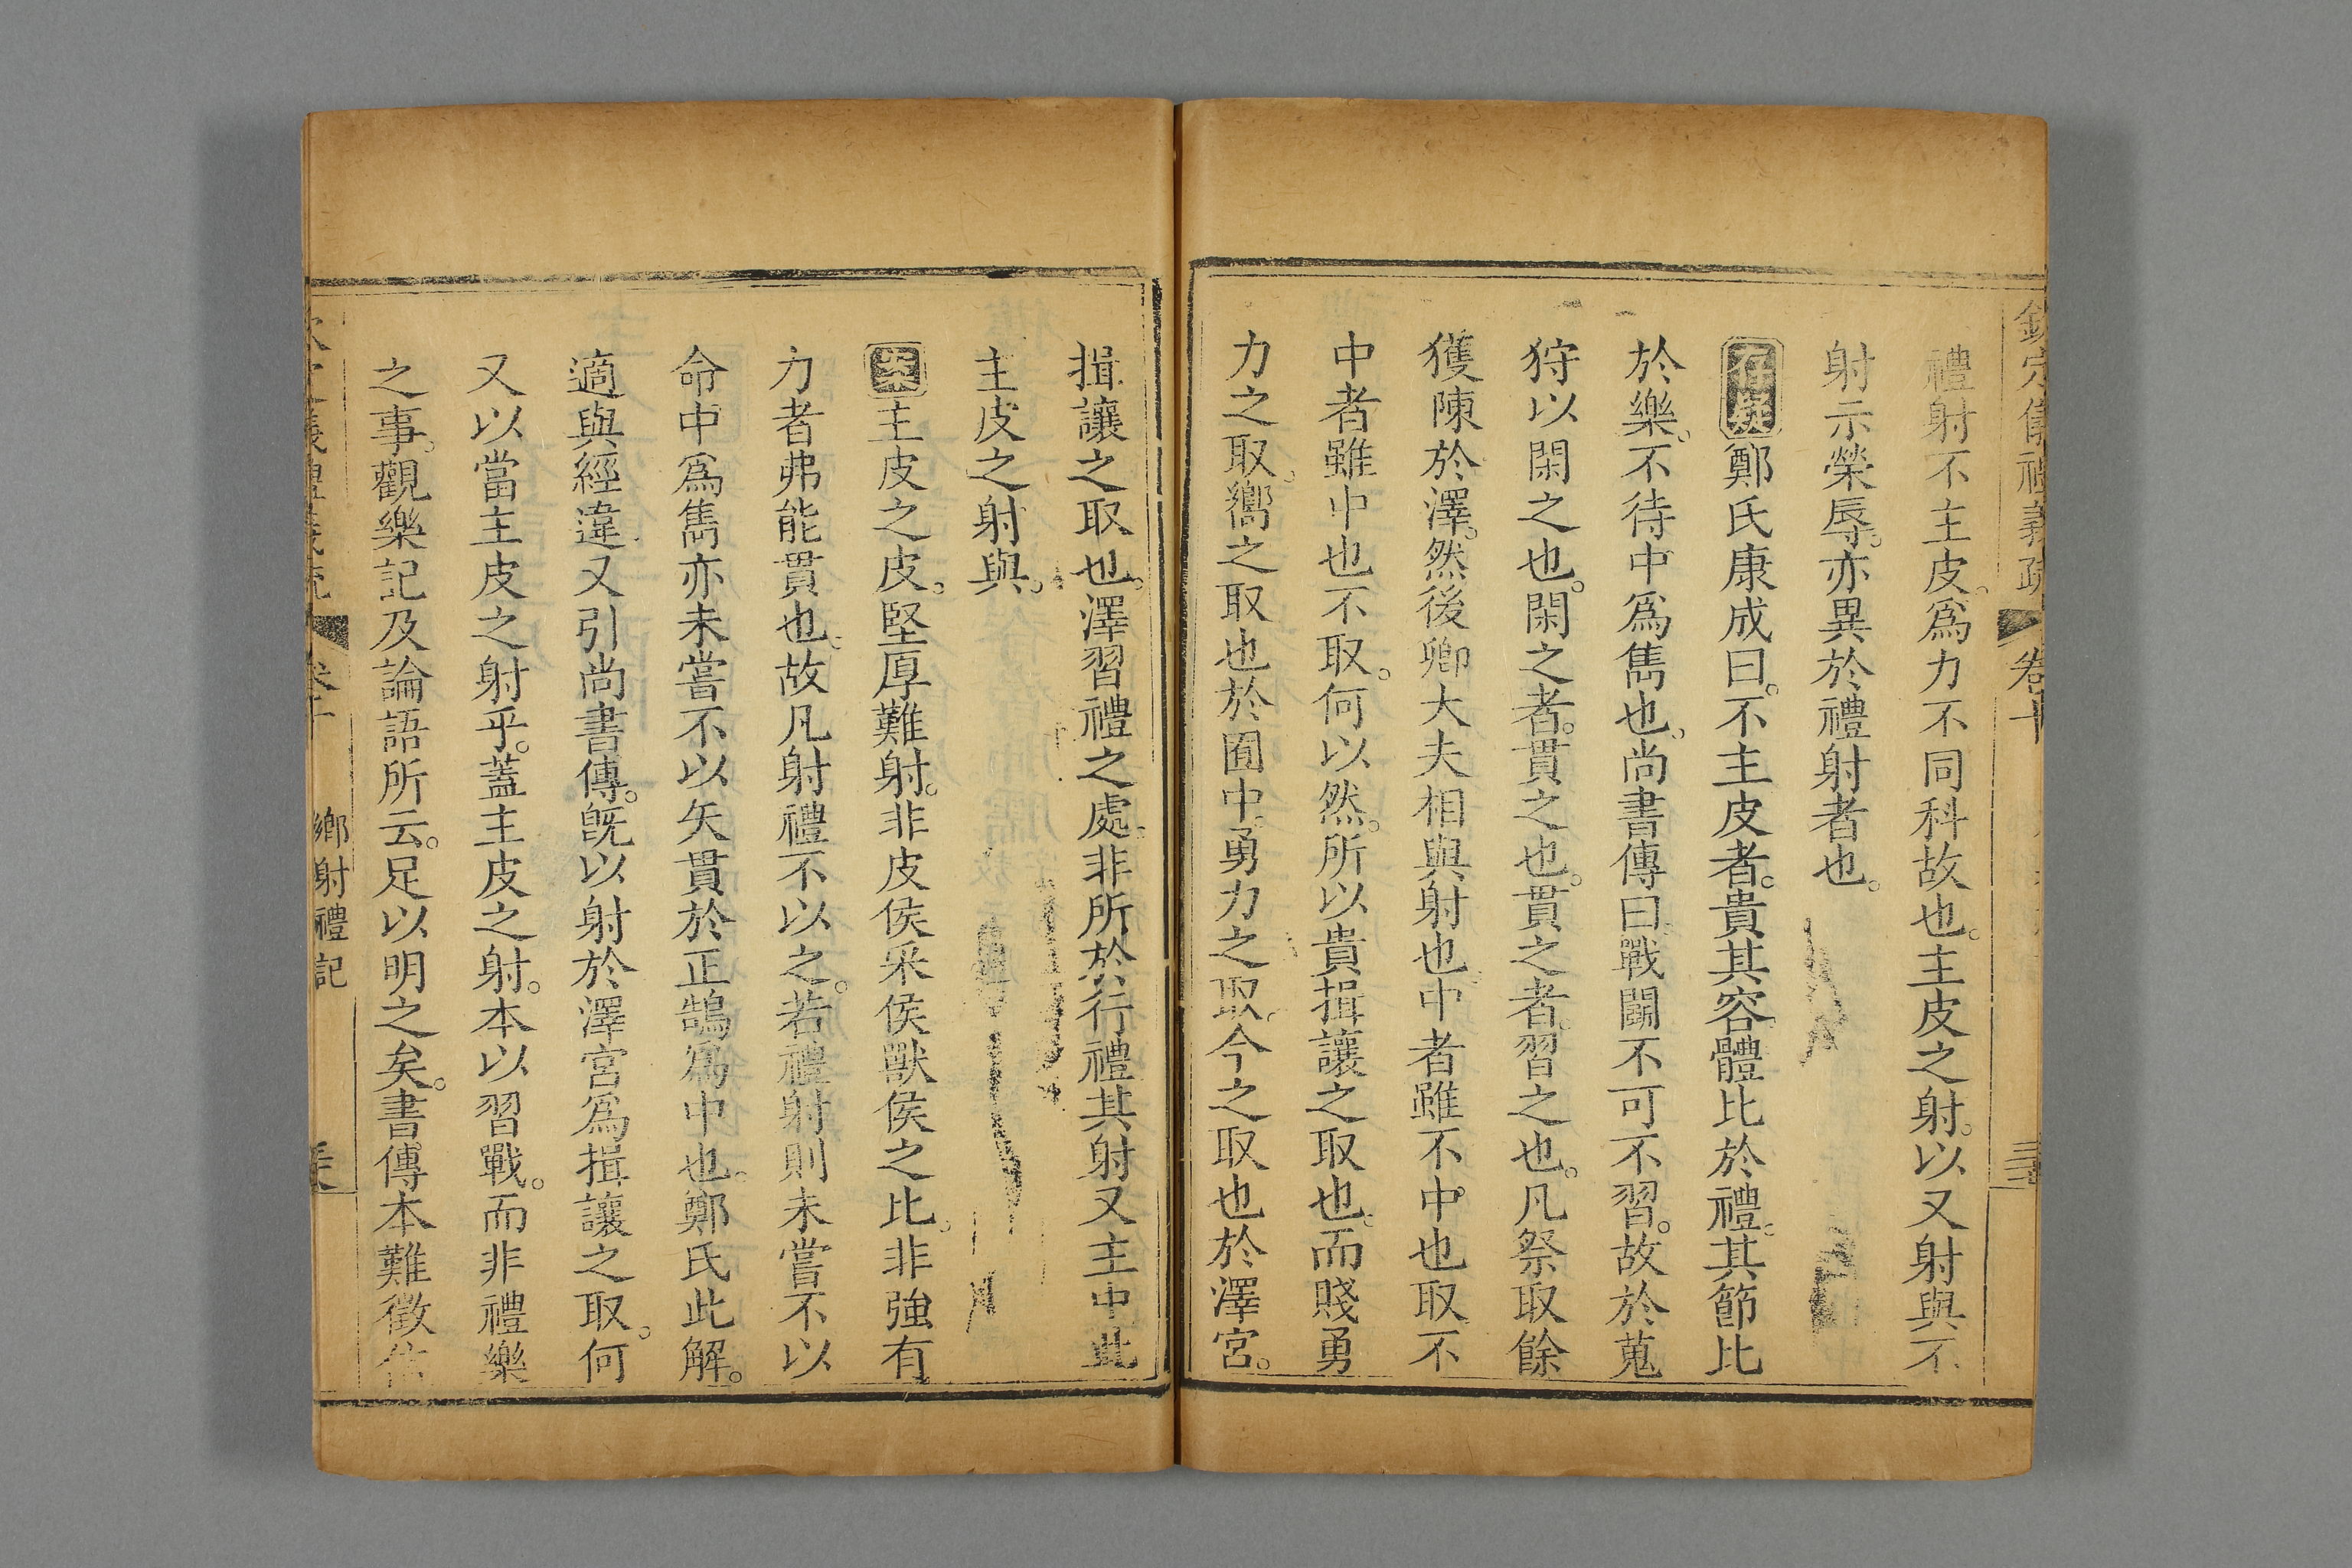 欽定儀禮義疏 卷十
禮射不主皮。爲力不同科故也。主皮之射。以又射與不
射示榮辱。亦異於禮射者也。
存疑鄭氏康成曰。不主皮者。貴其容體比於禮。其節比
於樂。不待中爲雋也。尚書傳曰戰鬭不可不習。故於蒐
狩以閑之也。閑之者。貫之也。貫之者。習之也。凡祭取餘
獲陳於澤。然後卿大夫相與射也。中者雖不中也取不
中者雖中也不取。何以然。所以貴揖讓之取也。而賤勇
力之取。嚮之取也於囿中。勇力之取。今之取也於澤宮。
揖讓之取也。澤習禮之處。非所於行禮其射又主中此
主皮之射與。
案主皮之皮。堅厚難射。非皮侯采侯獸侯之比。非強有
力者弗能貫也。故凡射禮不以之。若禮射則未嘗不以
命中爲雋亦未嘗不以矢貫於正鵠爲中也。鄭氏此解。
適與經違又引尚書傳。旣以射於澤宮爲揖讓之取。何
又以當主皮之射乎。蓋主皮之射。本以習戰。而非禮樂
之事。觀樂記及論語所云。足以明之矣。書傳本難徵信
鄉射禮記